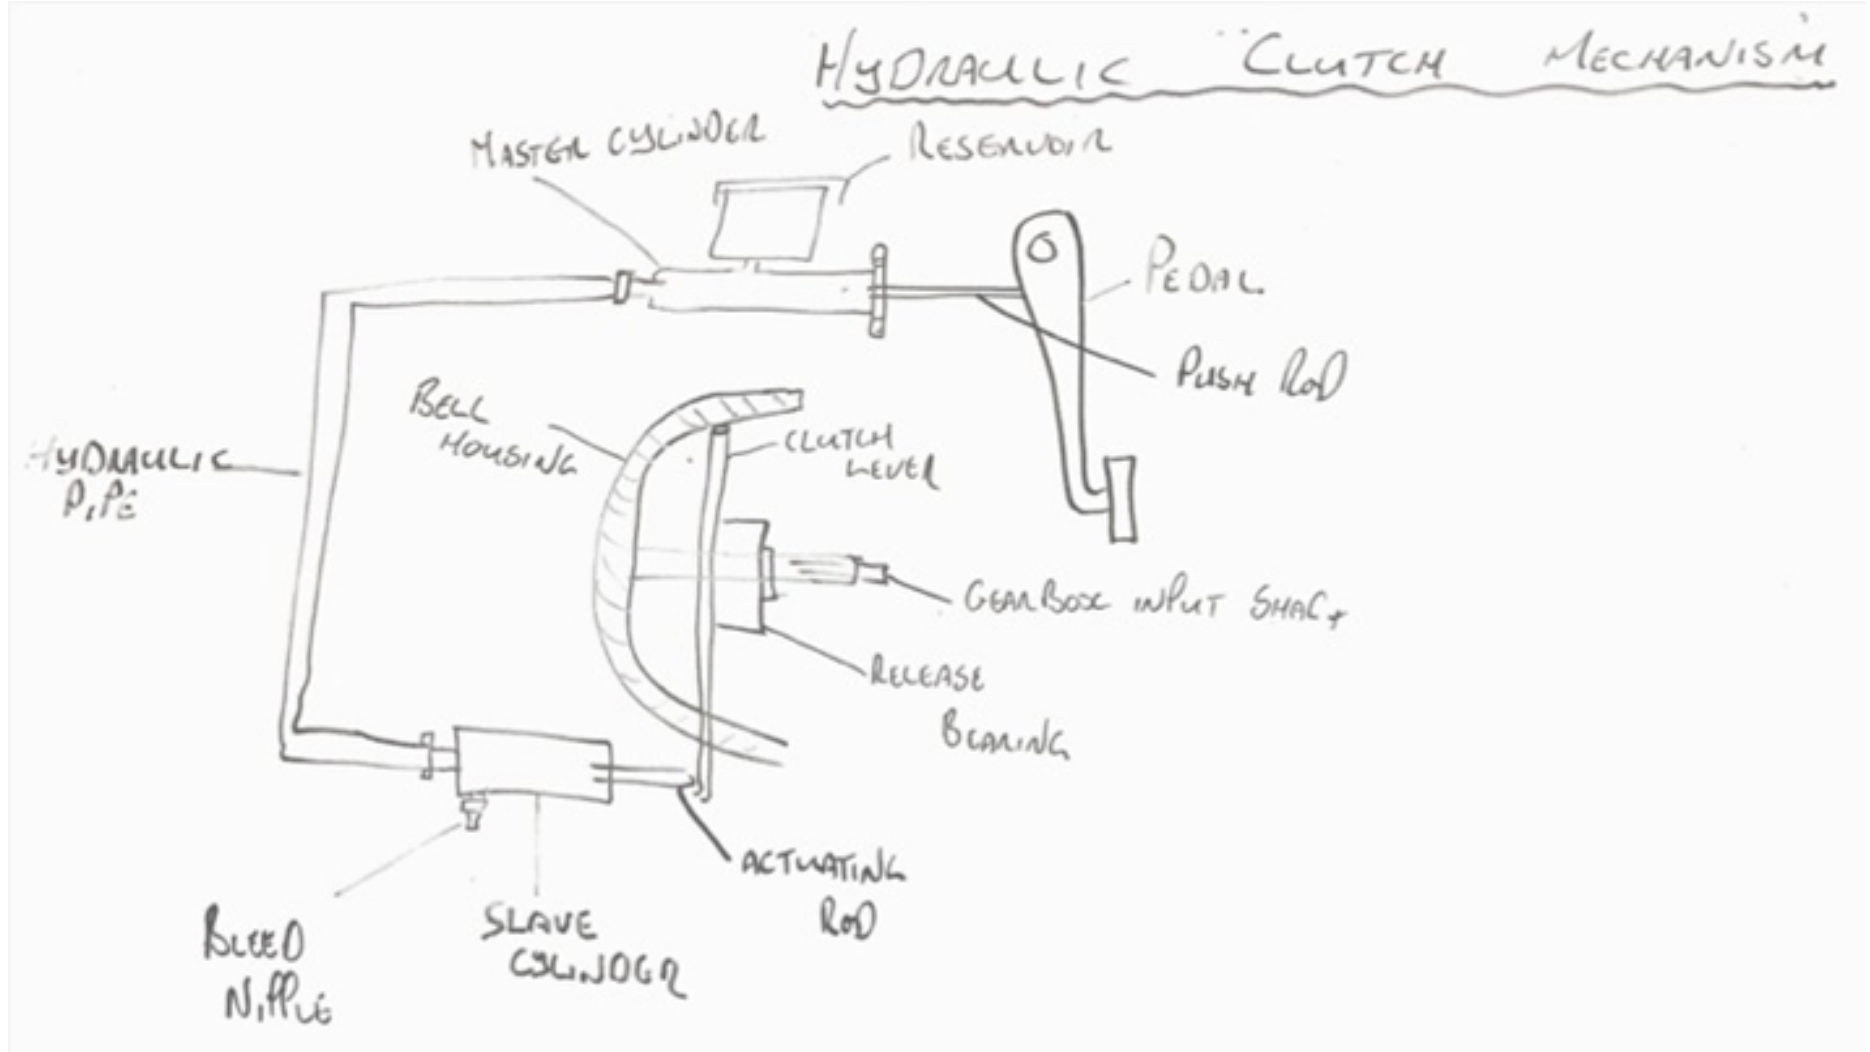 HYDRAULIC CLUTCH MECHANISM
MASTER CYLINDER
RESERVOIR
PEDAL
PUSH ROD
BELL
HOUSING
CLUTCH
LEVER
HYDRAULIC
PIPE
GEARBOX INPUT SHAFT
RELEASE
BEARING
ACTUATING
ROD
SLAVE
CYLINDER
BLEED
NIPPLE